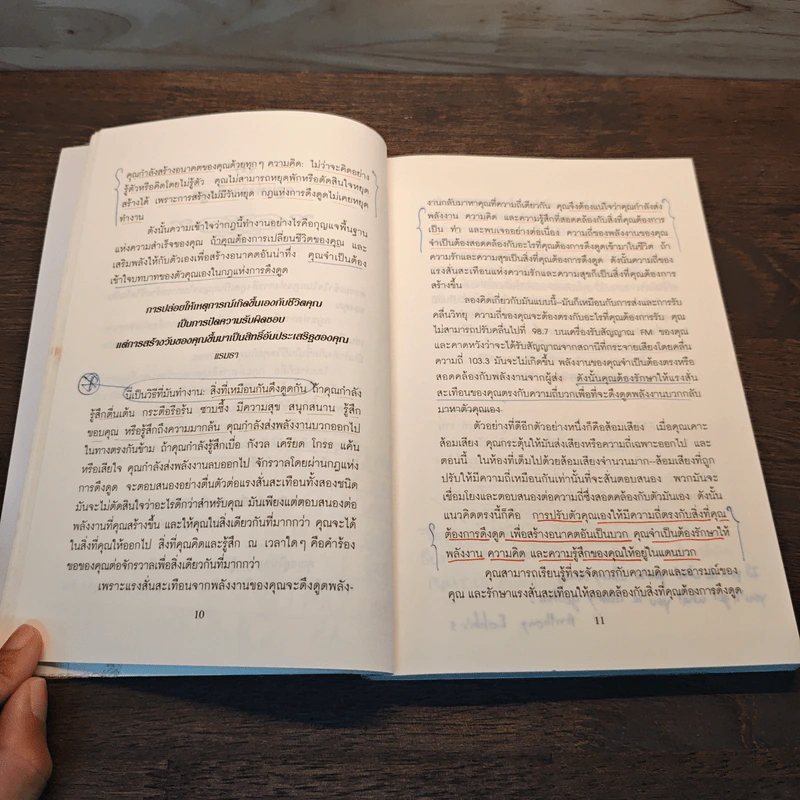 คุณกำลังสร้างอนาคตของคุณด้วยทุกๆ ความคิด: ไม่ว่าจะคิดอย่าง
รู้ตัวหรือคิดโดยไม่รู้ตัว คุณไม่สามารถหยุดพักหรือตัดสินใจหยุด
สร้างได้ เพราะการสร้างไม่มีวันหยุด กฎแห่งการดึงดูดไม่เคยหยุด
ทำงาน
ดังนั้นความเข้าใจว่ากฎนี้ทำงานอย่างไรคือกุญแจพื้นฐาน
แห่งความสำเร็จของคุณ ถ้าคุณต้องการเปลี่ยนชีวิตของคุณ และ
เสริมพลังให้กับตัวเองเพื่อสร้างอนาคตอันน่าทึ่ง คุณจำเป็นต้อง
เข้าใจบทบาทของตัวคุณเองในกฎแห่งการดึงดูด
การปล่อยให้เหตุการณ์เกิดขึ้นเองกับชีวิตคุณ
เป็นการปัดความรับผิดชอบ
แต่การสร้างวันของคุณขึ้นมาเป็นสิทธิ์อันประเสริฐของคุณ
แรมธา
นี่เป็นวิธีที่มันทำงาน: สิ่งที่เหมือนกันดึงดูดกัน ถ้าคุณกำลัง
รู้สึกตื่นเต้น กระตือรือร้น ซาบซึ้ง มีความสุข สนุกสนาน รู้สึก
ขอบคุณ หรือรู้สึกถึงความมากล้น คุณกำลังส่งพลังงานบวกออกไป
ในทางตรงกันข้าม ถ้าคุณกำลังรู้สึกเบื่อ กังวล เครียด โกรธ แค้น
หรือเสียใจ คุณกำลังส่งพลังงานลบออกไป จักรวาลโดยผ่านกฎแห่ง
การดึงดูด จะตอบสนองอย่างตื่นตัวต่อแรงสั่นสะเทือนทั้งสองชนิด
มันจะไม่ตัดสินใจว่าอะไรดีกว่าสำหรับคุณ มันเพียงแต่ตอบสนองต่อ
พลังงานที่คุณสร้างขึ้น และให้คุณในสิ่งเดียวกันที่มากกว่า คุณจะได้
ในสิ่งที่คุณให้ออกไป สิ่งที่คุณคิดและรู้สึก ณ เวลาใดๆ คือคำร้อง
ขอของคุณต่อจักรวาลเพื่อสิ่งเดียวกันที่มากกว่า
เพราะแรงสั่นสะเทือนจากพลังงานของคุณจะดึงดูดพลัง-
10
งานกลับมาหาคุณที่ความถี่เดียวกัน คุณจึงต้องแน่ใจว่าคุณกำลังส่ง
พลังงาน ความคิด และความรู้สึกที่สอดคล้องกับสิ่งที่คุณต้องการ
เป็น ทำ และพบเจออย่างต่อเนื่อง ความถี่ของพลังงานของคุณ
จำเป็นต้องสอดคล้องกับอะไรที่คุณต้องการดึงดูดเข้ามาในชีวิต ถ้า
ความรักและความสุขเป็นสิ่งที่คุณต้องการดึงดูด ดังนั้นความถี่ของ
แรงสั่นสะเทือนแห่งความรักและความสุขก็เป็นสิ่งที่คุณต้องการ
สร้างขึ้น
ลองคิดเกี่ยวกับมันแบบนี้–มันก็เหมือนกับการส่งและการรับ
คลื่นวิทยุ ความถี่ของคุณจะต้องตรงกับอะไรที่คุณต้องการรับ คุณ
ไม่สามารถปรับคลื่นไปที่ 98.7 บนเครื่องรับสัญญาณ FM ของคุณ
และคาดหวังว่าจะได้รับสัญญาณจากสถานีที่กระจายเสียงโดยคลื่น
ความถี่ 103.3 มันจะไม่เกิดขึ้น พลังงานของคุณจำเป็นต้องตรงหรือ
สอดคล้องกับพลังงานจากผู้ส่ง ดังนั้นคุณต้องรักษาให้แรงสั่น
สะเทือนของคุณตรงกับความถี่บวกเพื่อที่จะดึงดูดพลังงานบวกกลับ
มาหาตัวคุณเอง
ตัวอย่างที่ดีอีกตัวอย่างหนึ่งก็คือส้อมเสียง เมื่อคุณเคาะ
ส้อมเสียง คุณกระตุ้นให้มันส่งเสียงหรือความถี่เฉพาะออกไป และ
ตอนนี้ ในห้องที่เต็มไปด้วยส้อมเสียงจำนวนมาก–ส้อมเสียงที่ถูก
ปรับให้มีความถี่เหมือนกันเท่านั้นที่จะสั่นตอบสนอง พวกมันจะ
เชื่อมโยงและตอบสนองต่อความถี่ซึ่งสอดคล้องกับตัวมันเอง ดังนั้น
แนวคิดตรงนี้ก็คือ การปรับตัวคุณเองให้มีความถี่ตรงกับสิ่งที่คุณ
ต้องการดึงดูด เพื่อสร้างอนาคตอันเป็นบวก คุณจำเป็นต้องรักษาให้
พลังงาน ความคิด และความรู้สึกของคุณให้อยู่ในแดนบวก
คุณสามารถเรียนรู้ที่จะจัดการกับความคิดและอารมณ์ของ
คุณ และรักษาแรงสั่นสะเทือนให้สอดคล้องกับสิ่งที่คุณต้องการดึงดูด
11